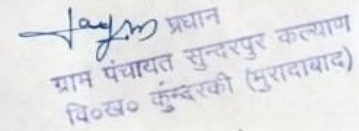 प्रधान
ग्राम पंचायत सुन्दरपुर कल्याण
वि०ख० कुंन्दरकी (मुरादाबाद)